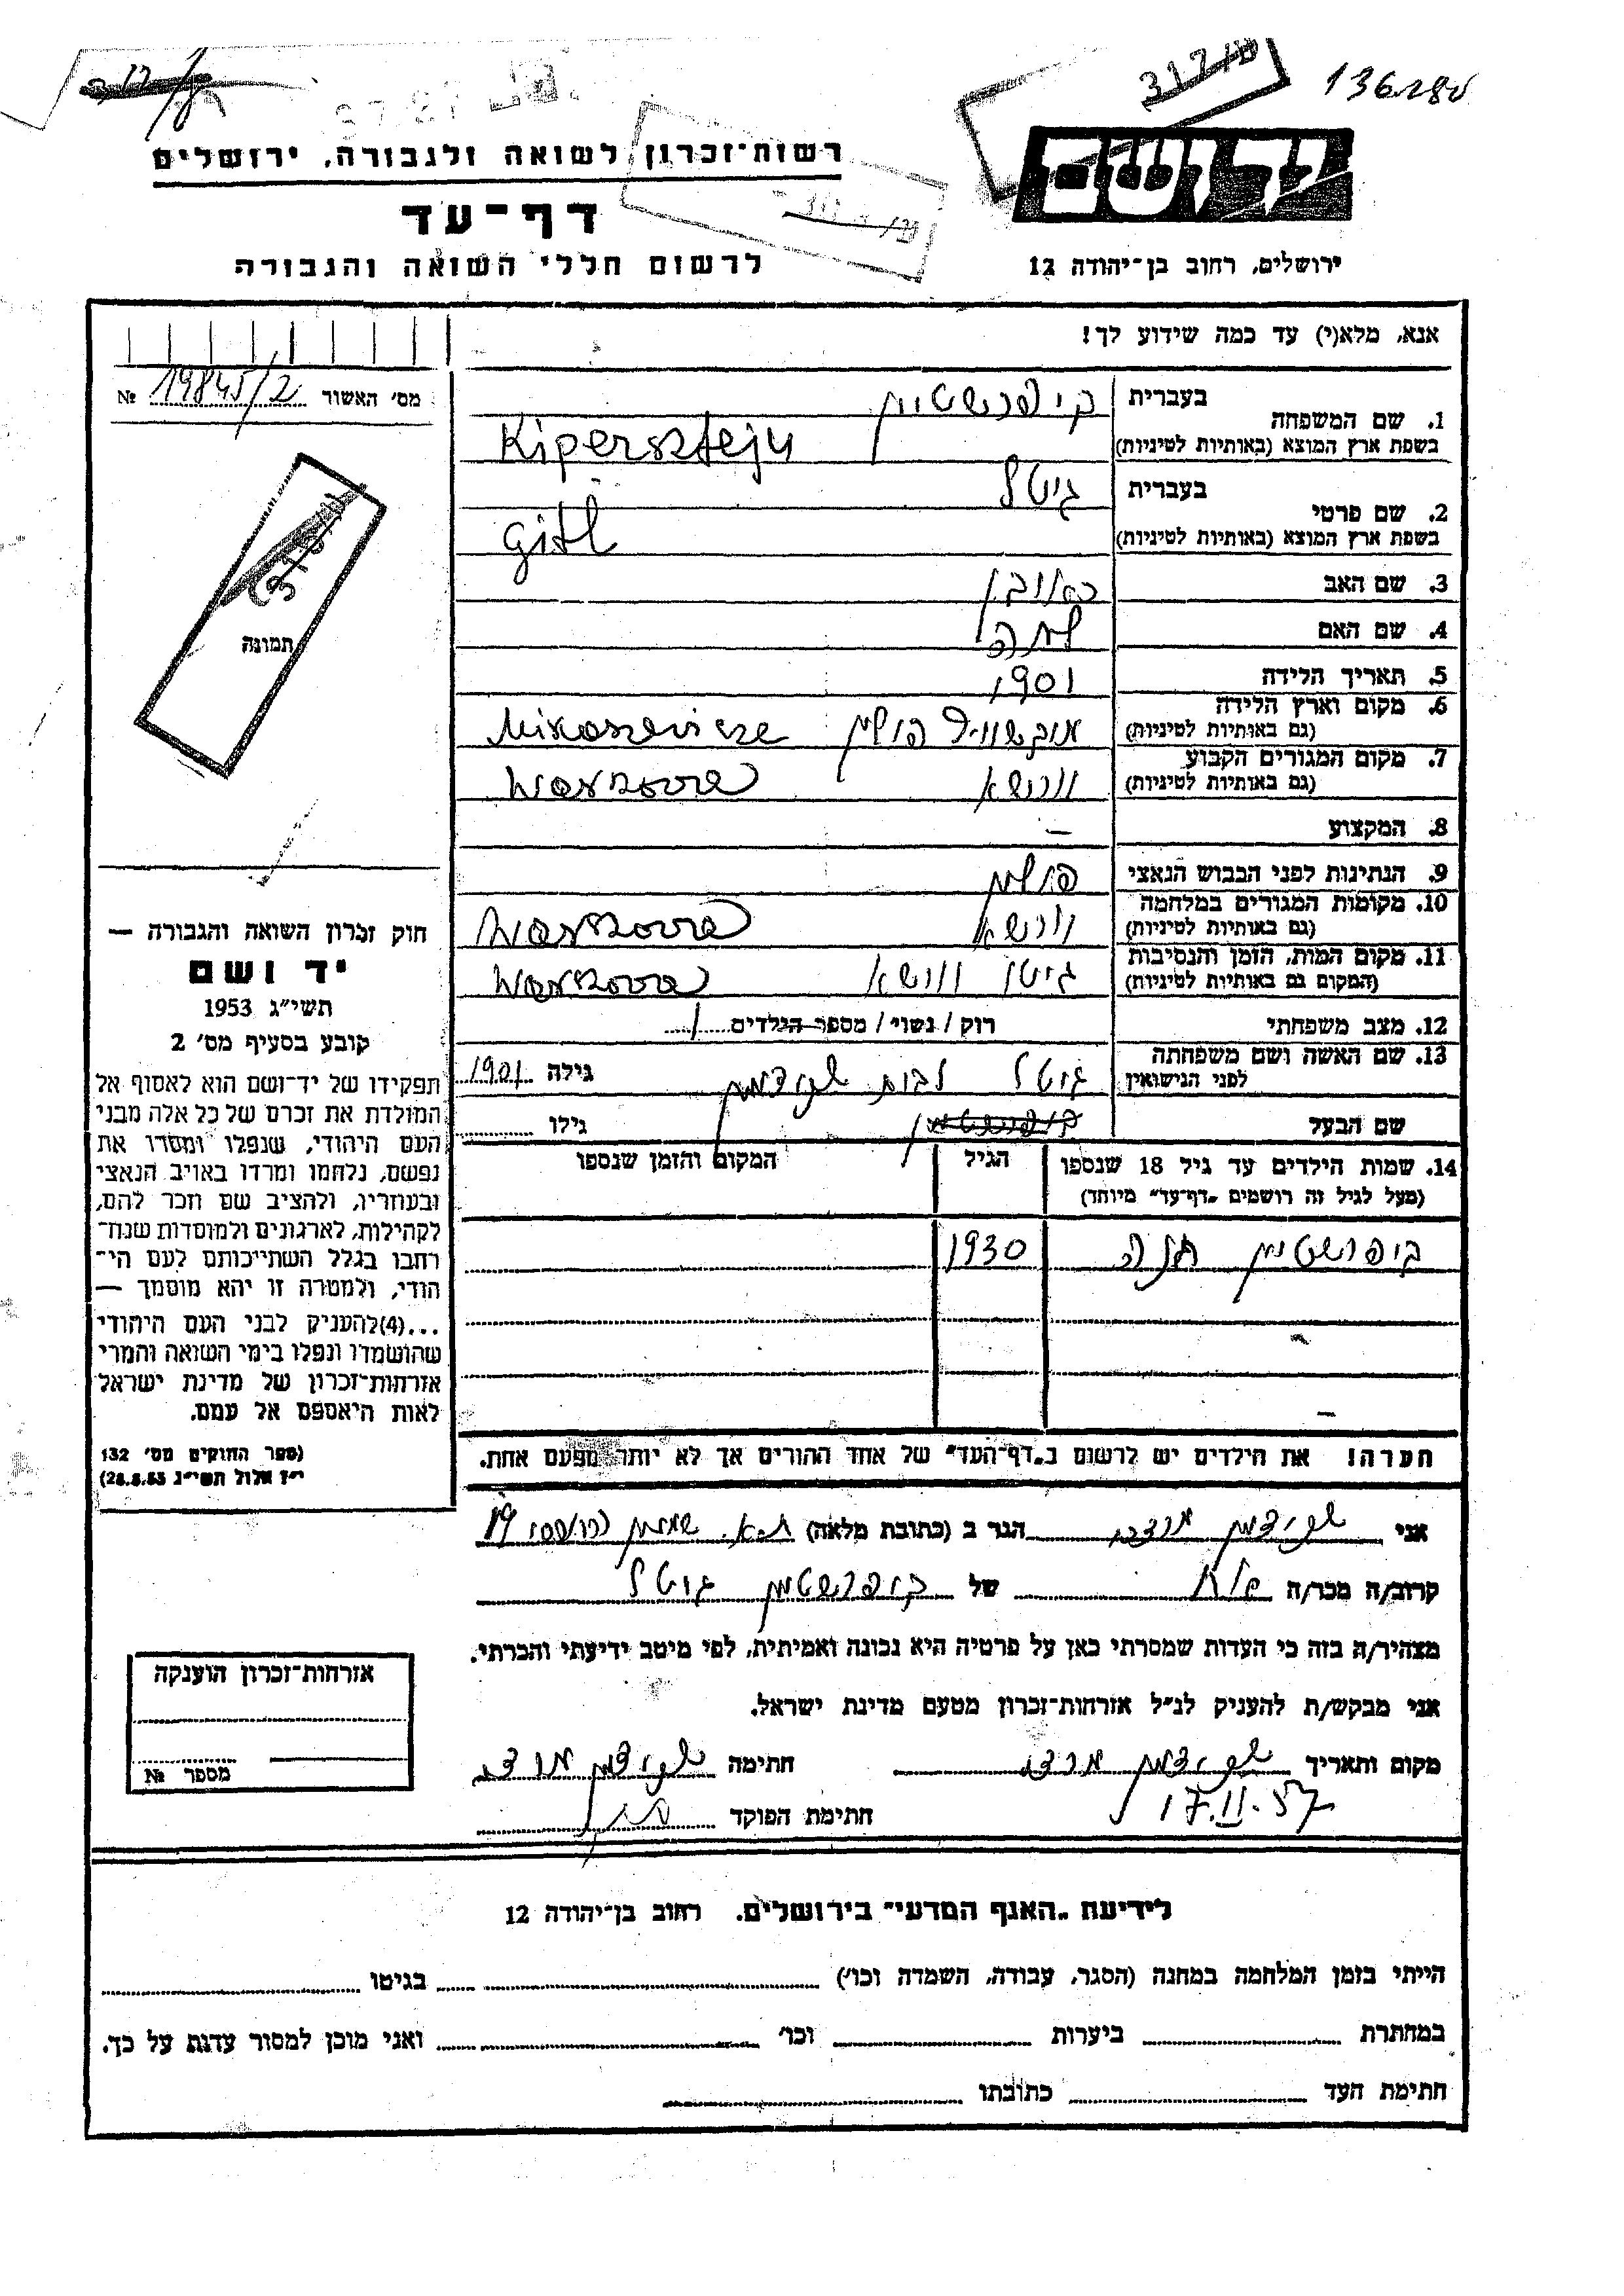 136280
רשות־זכרון לשואה ולגבורה, ירושלים
יד ושם
דף־עד
לרשום חללי השואה והגבורה
ירושלים, רחוב בן־יהודה 12
אנא, מלא(י) עד כמה שידוע לך!
מס׳ האשור 19845/2 №
תמונה
1. שם המשפחה
בעברית קיפרשטיין
בשפת ארץ המוצא (באותיות לטיניות) Kipersztejn
2. שם פרטי
בעברית גיטל
בשפת ארץ המוצא (באותיות לטיניות) Gitl
3. שם האב ראובן
4. שם האם
5. תאריך הלידה 1901
6. מקום וארץ הלידה
(גם באותיות לטיניות) פולין
7. מקום המגורים הקבוע
(גם באותיות לטיניות) וורשא Warszawa
8. המקצוע –
9. הנתינות לפני הכבוש הנאצי פולין
10. מקומות המגורים במלחמה
(גם באותיות לטיניות) וורשא Warszawa
11. מקום המות, הזמן והנסיבות
(המקום גם באותיות לטיניות) גיטו וורשא Warszawa
12. מצב משפחתי רוק / נשוי / מספר הילדים 1
13. שם האשה ושם משפחתה
לפני הנישואין גיטל לבית גילה 1901
שם הבעל גילו
14. שמות הילדים עד גיל 18 שנספו הגיל המקום והזמן שנספו
(מעל לגיל זה רושמים „דף־עד״ מיוחד)
קיפרשטיין חנה 1930
הערה! את הילדים יש לרשום ב„דף־העד״ של אחד ההורים אך לא יותר מפעם אחת.
חוק זכרון השואה והגבורה —
יד ושם
תשי״ג 1953
קובע בסעיף מס׳ 2
תפקידו של יד־ושם הוא לאסוף אל
המולדת את זכרם של כל אלה מבני
העם היהודי, שנפלו ומסרו את
נפשם, נלחמו ומרדו באויב הנאצי
ובעוזריו, ולהציב שם וזכר להם,
לקהילות, לארגונים ולמוסדות שנח־
רחבו בגלל השתייכותם לעם הי־
הודי, ולמטרה זו יהא מוסמך —
...(4)להעניק לבני העם היהודי
שהושמדו ונפלו בימי השואה והמרי
אזרחות־זכרון של מדינת ישראל
לאות היאספם אל עמם.
(ספר החוקים מס׳ 132
י״ז אלול תשי״ג 28.8.53)
אני מרדכי הגר ב (כתובת מלאה) ת.א. 19
קרוב/ה מכר/ה אח של קיפרשטיין גיטל
מצהיר/ה בזה כי העדות שמסרתי כאן על פרטיה היא נכונה ואמיתית, לפי מיטב ידיעתי והכרתי.
אני מבקש/ת להעניק לנ״ל אזרחות־זכרון מטעם מדינת ישראל.
מקום ותאריך חתימה
17.II.57
חתימת הפוקד
אזרחות־זכרון הוענקה
מספר №
לידיעת „האגף המדעי״ בירושלים. רחוב בן־יהודה 12
הייתי בזמן המלחמה במחנה (הסגר, עבודה, השמדה וכו׳) בגיטו
במחתרת ביערות וכו׳ ואני מוכן למסור עדות על כך.
חתימת העד כתובתו